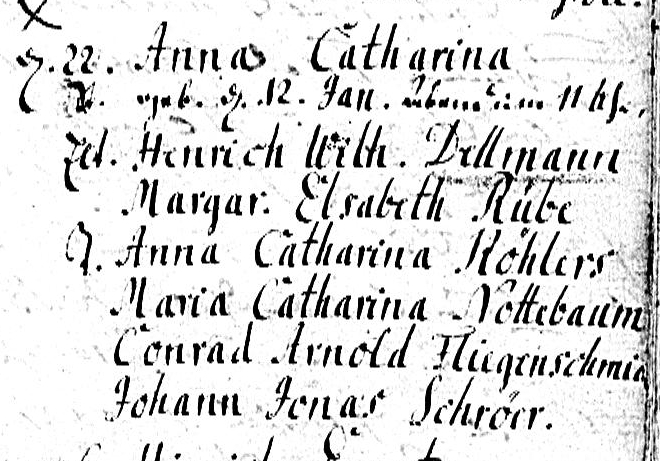 d. 22. Anna Catharina
geb. d. 12. Jan. 11 Uhr,
Elt. Henrich Wilh. Dellmann
Margar. Elsabeth Rübe
G. Anna Catharina Köhlers
Maria Catharina Nottebaum
Conrad Arnold Fliegenschmid
Johann Jonas Schröer.